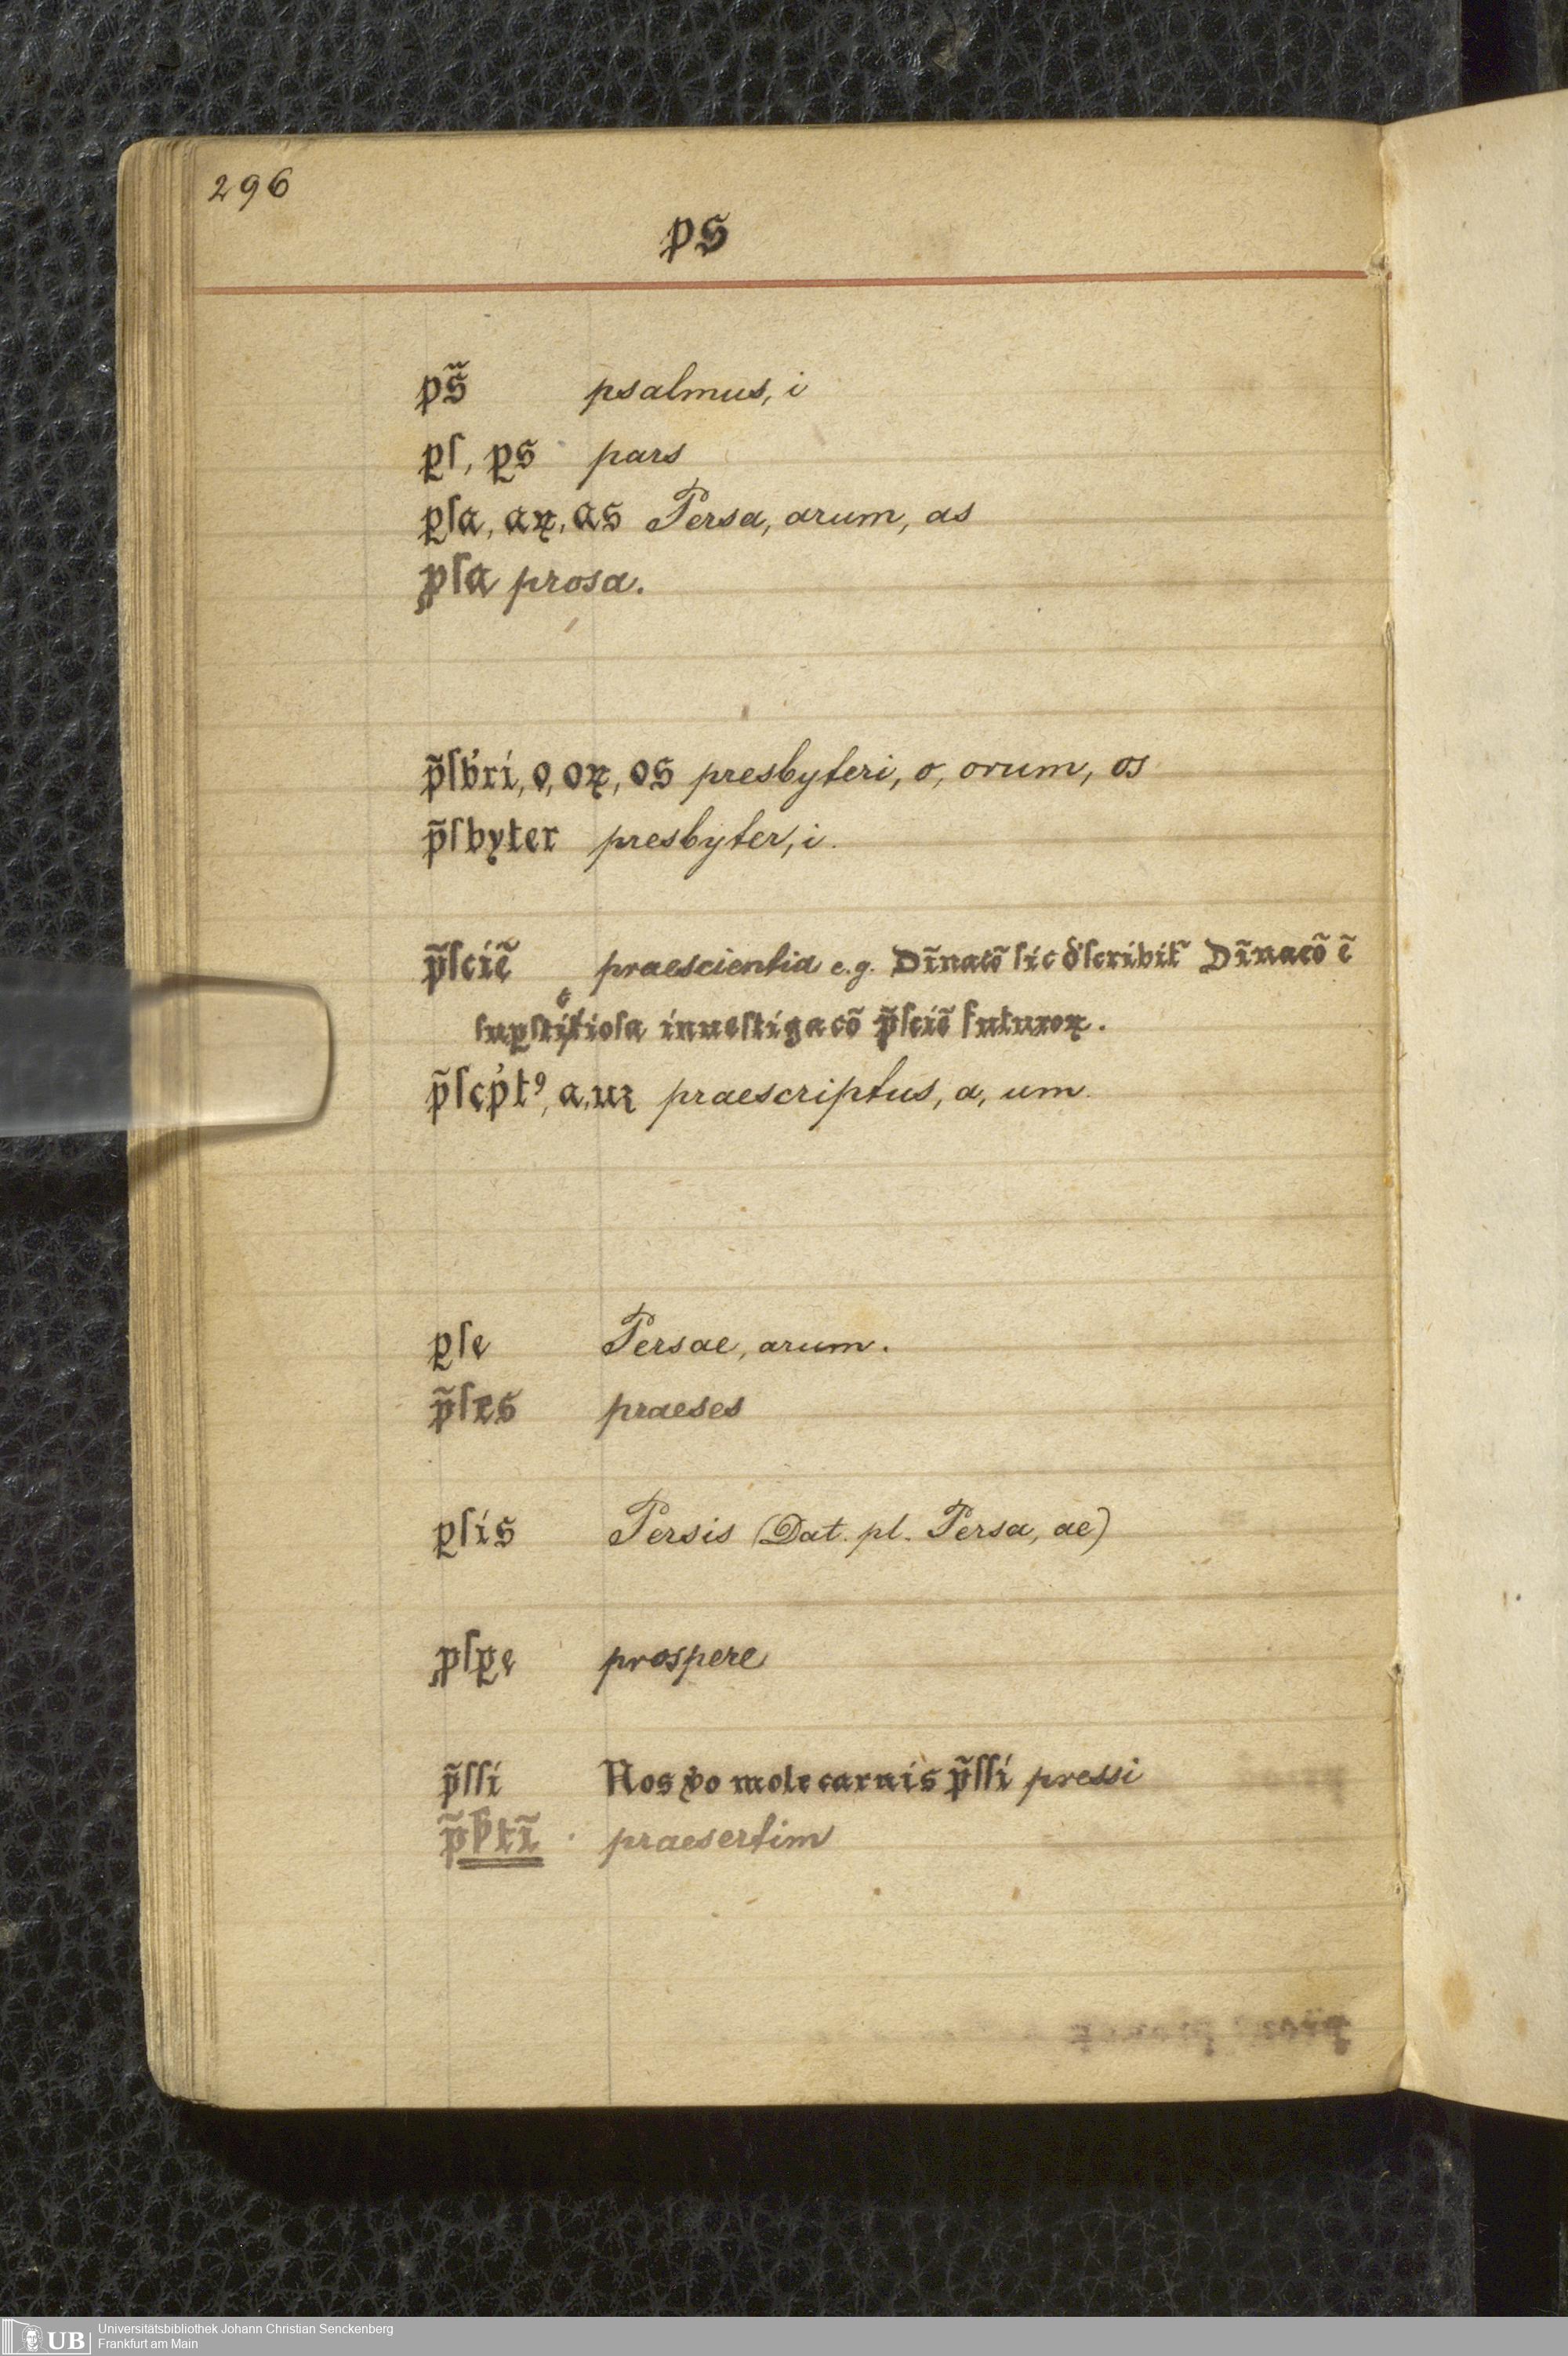 296
ps
ps̃ psalmus, i
ꝑſ, ꝑs pars
ꝑſa, aꝝ, as Persa, arum, as
ꝓſa prosa.
p̃ſb'ri, o, oꝝ, os presbyteri, o, orum, os
p̃ſbyter presbyter, i.
p̃ſciẽ praescientia e.g. Dĩnacõ ſic d'ſcribit᷑ Dĩnacõ ẽ
ſuꝑſticioſa inueſtigacõ p̃ſciẽ futuroꝝ.
p̃ſcp't⁹, a, uꝫ praescriptus, a, um.
ꝑſe Persae, arum.
p̃ſes praeses
ꝑſis Persis (Dat. pl. Persa, ae)
ꝓſꝑe prospere
p̃ſſi Nos v̾o mole carnis p̃ſſi pressi
p̃ẜtĩ praesertim
Universitätsbibliothek Johann Christian Senckenberg
Frankfurt am Main
UB